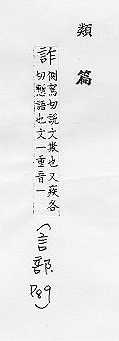 類篇
詐 側駕切說文欺也又疾各
切慙語也文一重音一
(言部
P89)